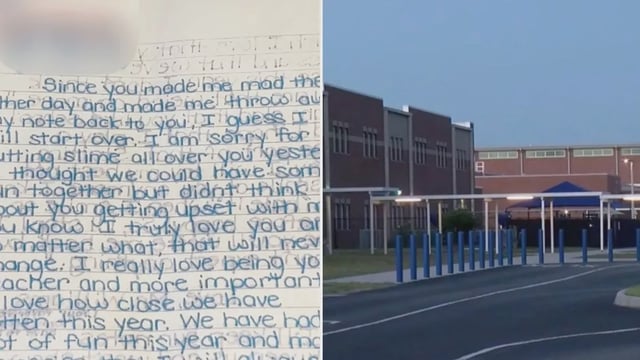 Since you made me mad the
ther day and made me throw aw
y note back to you. I guess I
ill start over. I am sorry for
utting slime all over you yeste
thought we could have som
un together but didnt think
out you getting upset with m
ou know I truly love you an
o matter what, that will nev
ange. I really love being yo
acher and more importan
I love how close we have
tten this year. We have had
ot of fun this year and ma